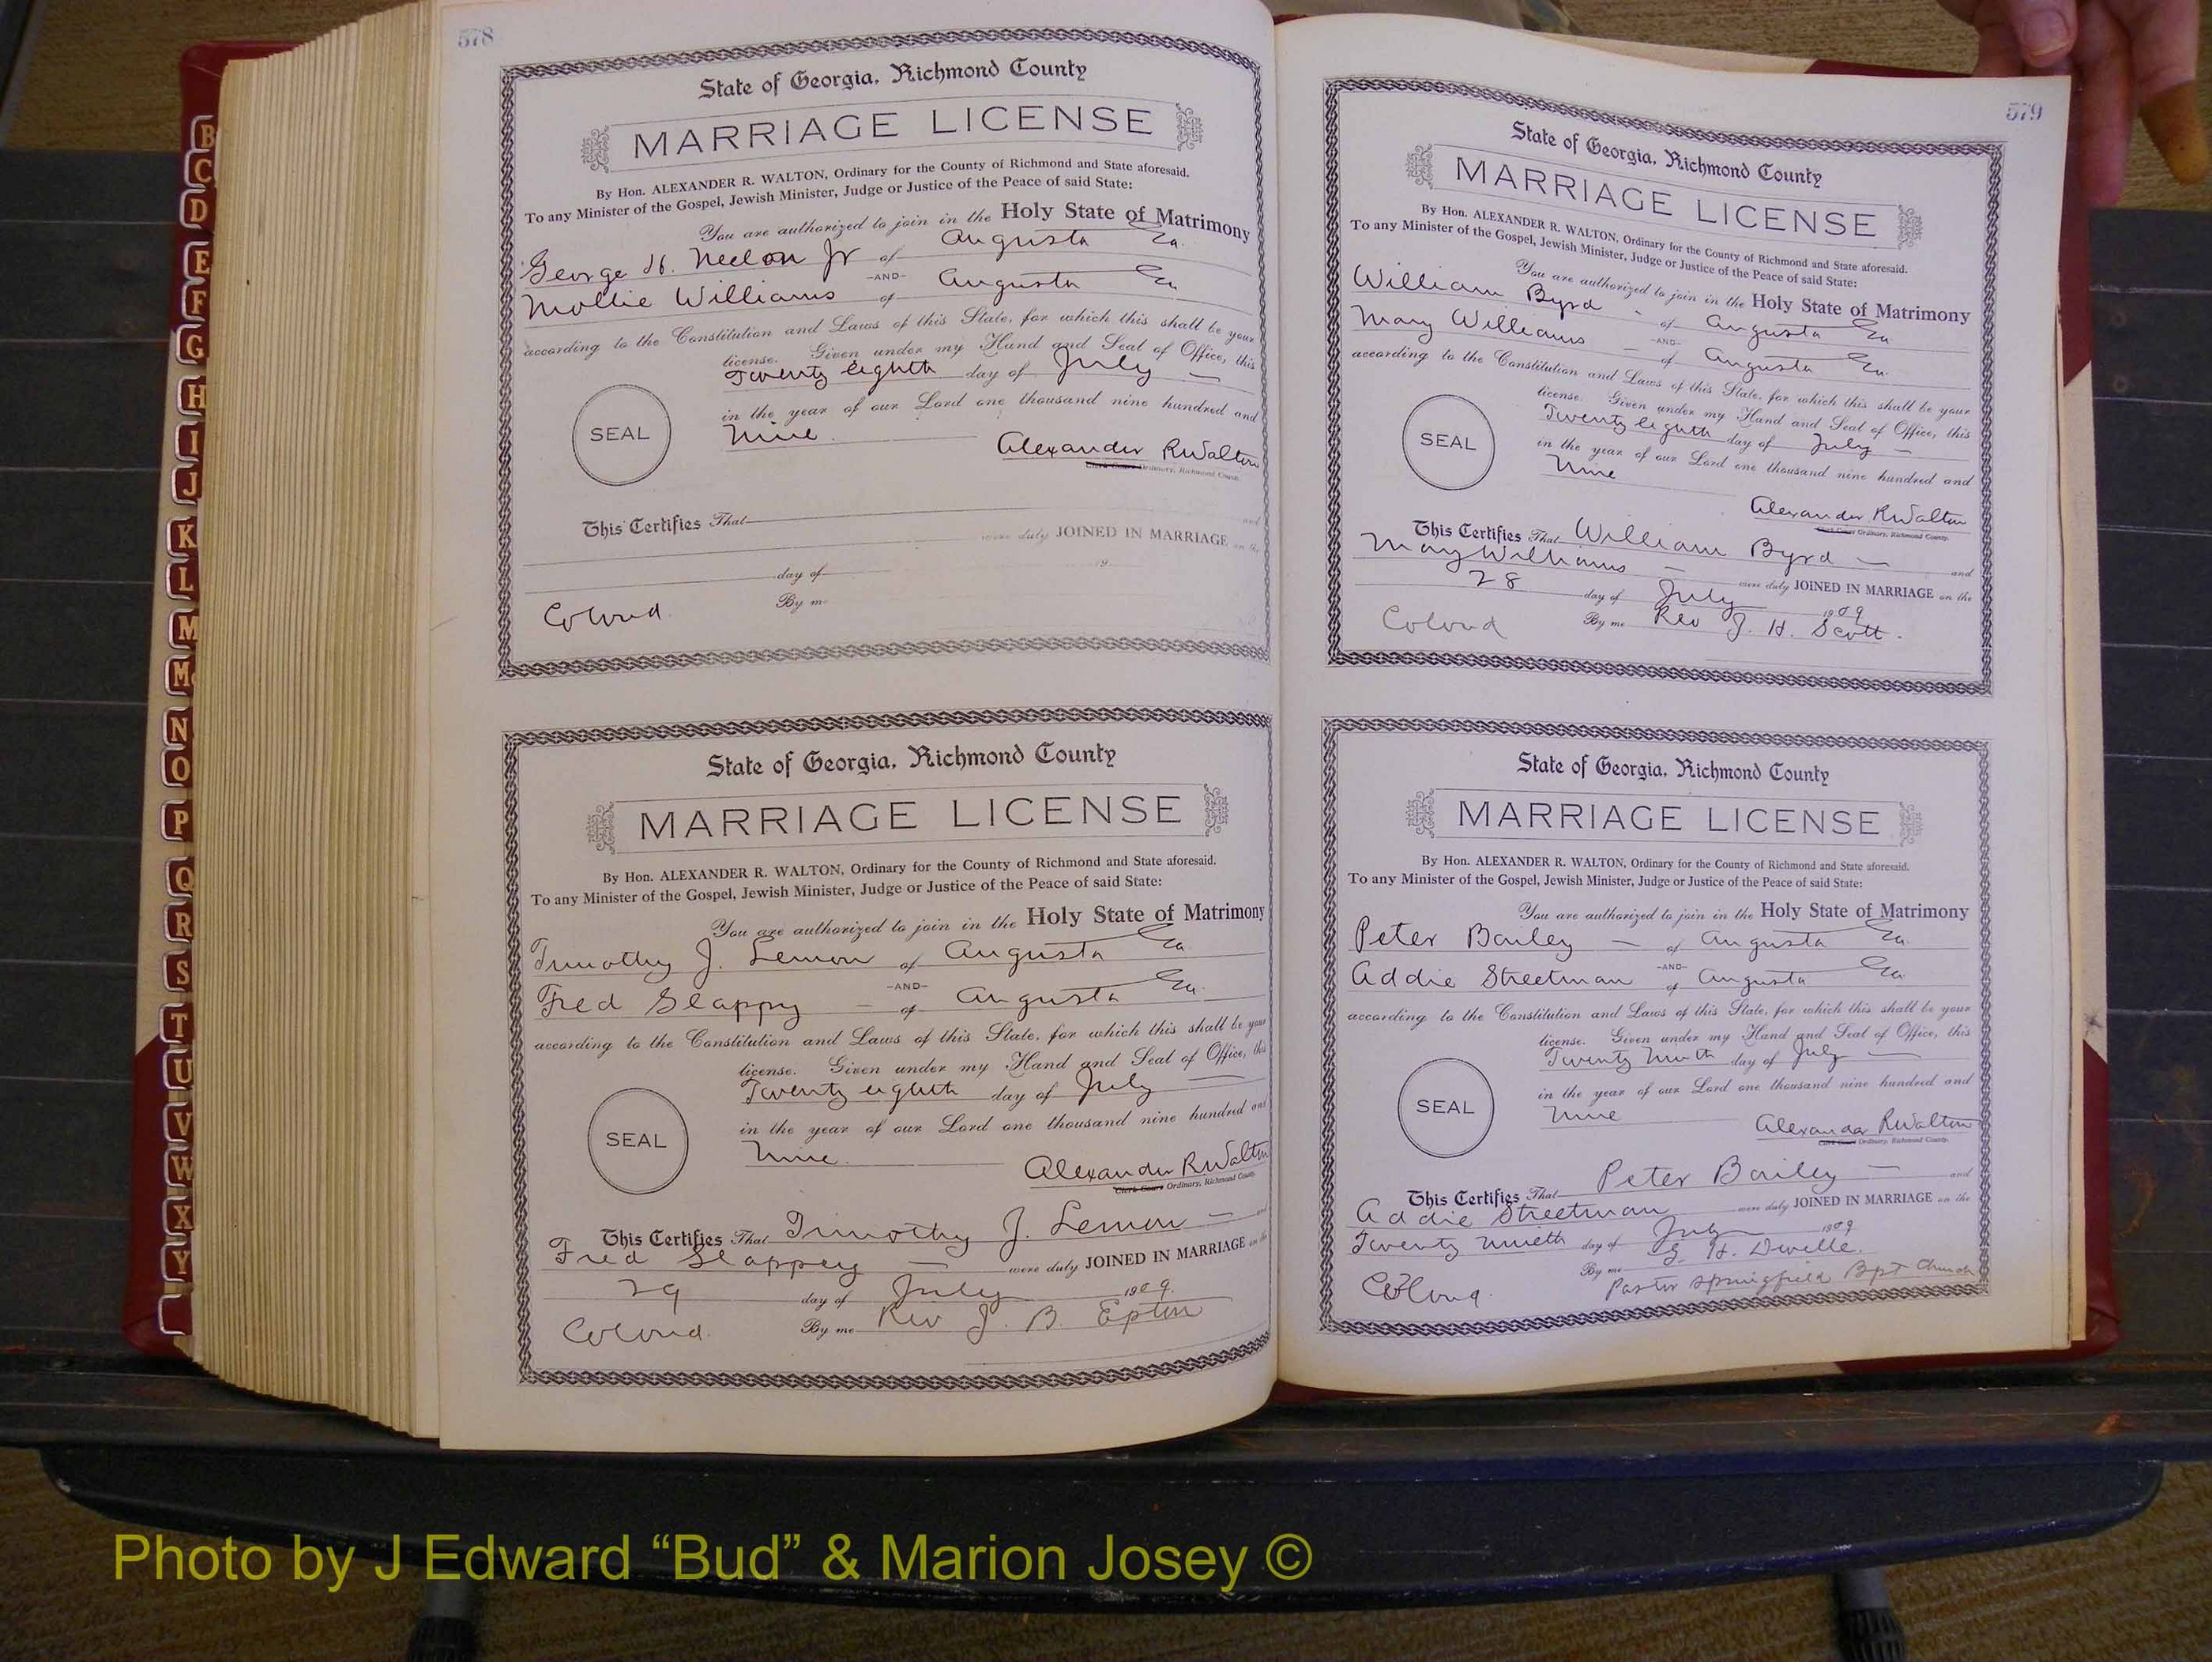 B
C
D
E
F
G
H
I
J
K
L
M
Mc
N
O
P
Q
R
S
T
U
V
W
X
Y
578
State of Georgia, Richmond County
MARRIAGE LICENSE
By Hon. ALEXANDER R. WALTON, Ordinary for the County of Richmond and State aforesaid.
To any Minister of the Gospel, Jewish Minister, Judge or Justice of the Peace of said State:
You are authorized to join in the Holy State of Matrimony
George H. Nelson Jr of Augusta Ga.
-AND-
Mollie Williams of Augusta Ga
according to the Constitution and Laws of this State, for which this shall be your
license. Given under my Hand and Seal of Office, this
Twenty eighth day of July
in the year of our Lord one thousand nine hundred and
nine
SEAL
Alexander R Walton
Clerk Court Ordinary, Richmond County.
This Certifies That and
were duly JOINED IN MARRIAGE on the
day of 19
Colord By me
State of Georgia, Richmond County
MARRIAGE LICENSE
By Hon. ALEXANDER R. WALTON, Ordinary for the County of Richmond and State aforesaid.
To any Minister of the Gospel, Jewish Minister, Judge or Justice of the Peace of said State:
You are authorized to join in the Holy State of Matrimony
Timothy J. Lemon of Augusta Ga
-AND-
Fred Slappy – of Augusta Ga.
according to the Constitution and Laws of this State, for which this shall be your
license. Given under my Hand and Seal of Office, this
Twenty eighth day of July –
in the year of our Lord one thousand nine hundred and
nine
SEAL
Alexander R Walton
Clerk Court Ordinary, Richmond County.
This Certifies That Timothy J. Lemon – and
Fred Slappey – were duly JOINED IN MARRIAGE on the
29 day of July 1909.
Colord. By me Rev J. B. Epton
579
State of Georgia, Richmond County
MARRIAGE LICENSE
By Hon. ALEXANDER R. WALTON, Ordinary for the County of Richmond and State aforesaid.
To any Minister of the Gospel, Jewish Minister, Judge or Justice of the Peace of said State:
You are authorized to join in the Holy State of Matrimony
William Byrd – of Augusta Ga
-AND-
Mary Williams – of Augusta Ga.
according to the Constitution and Laws of this State, for which this shall be your
license. Given under my Hand and Seal of Office, this
Twenty eighth day of July –
in the year of our Lord one thousand nine hundred and
nine
SEAL
Alexander R Walton
Clerk Court Ordinary, Richmond County.
This Certifies That William Byrd – and
Mary Williams – were duly JOINED IN MARRIAGE on the
28 day of July 1909
Colord By me Rev J. H. Scott.
State of Georgia, Richmond County
MARRIAGE LICENSE
By Hon. ALEXANDER R. WALTON, Ordinary for the County of Richmond and State aforesaid.
To any Minister of the Gospel, Jewish Minister, Judge or Justice of the Peace of said State:
You are authorized to join in the Holy State of Matrimony
Peter Bailey – of Augusta Ga.
-AND-
Addie Streetman of Augusta Ga.
according to the Constitution and Laws of this State, for which this shall be your
license. Given under my Hand and Seal of Office, this
Twenty ninth day of July –
in the year of our Lord one thousand nine hundred and
nine
SEAL
Alexander R Walton
Clerk Court Ordinary, Richmond County.
This Certifies That Peter Bailey – and
Addie Streetman were duly JOINED IN MARRIAGE on the
Twenty nineth day of July 1909
By me H. Dwelle.
Pastor Springfield Bpt Church
Photo by J Edward “Bud” & Marion Josey ©